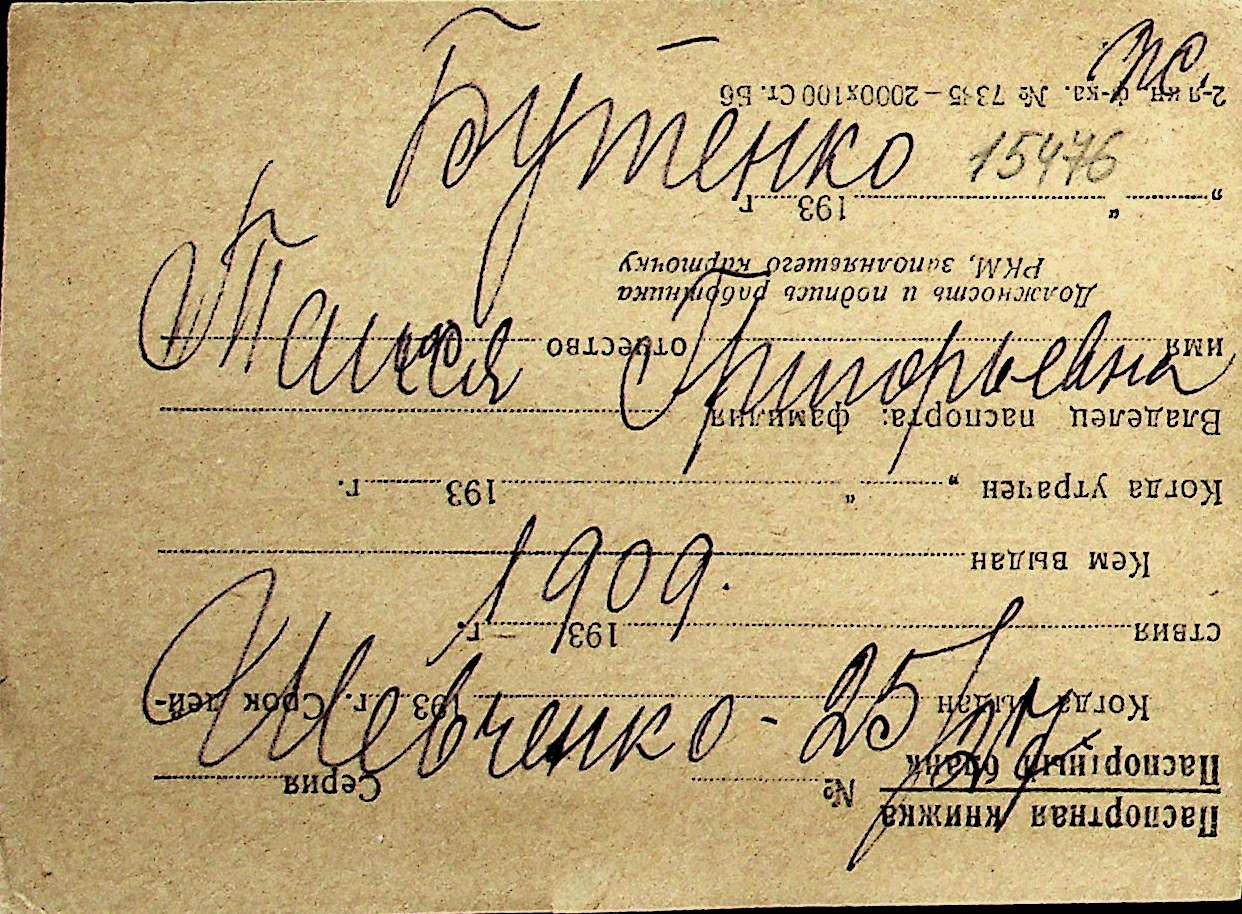 Бутенко 15476
Таисия Григорьевна
1909.
Шевченко - 25/
Паспортная книжка
Паспортный бланк № Серия
Когда выдан 193 г. Срок дей-
ствия 193 г.
Кем выдан
Когда утрачен „ “ 193 г.
Владелец паспорта: фамилия
имя отчество
Должность и подпись работника
РКМ, заполнявшего карточку
„ “ 193 г
2-я кн. ф-ка. № 7345 – 2000х100 Ст. Бб